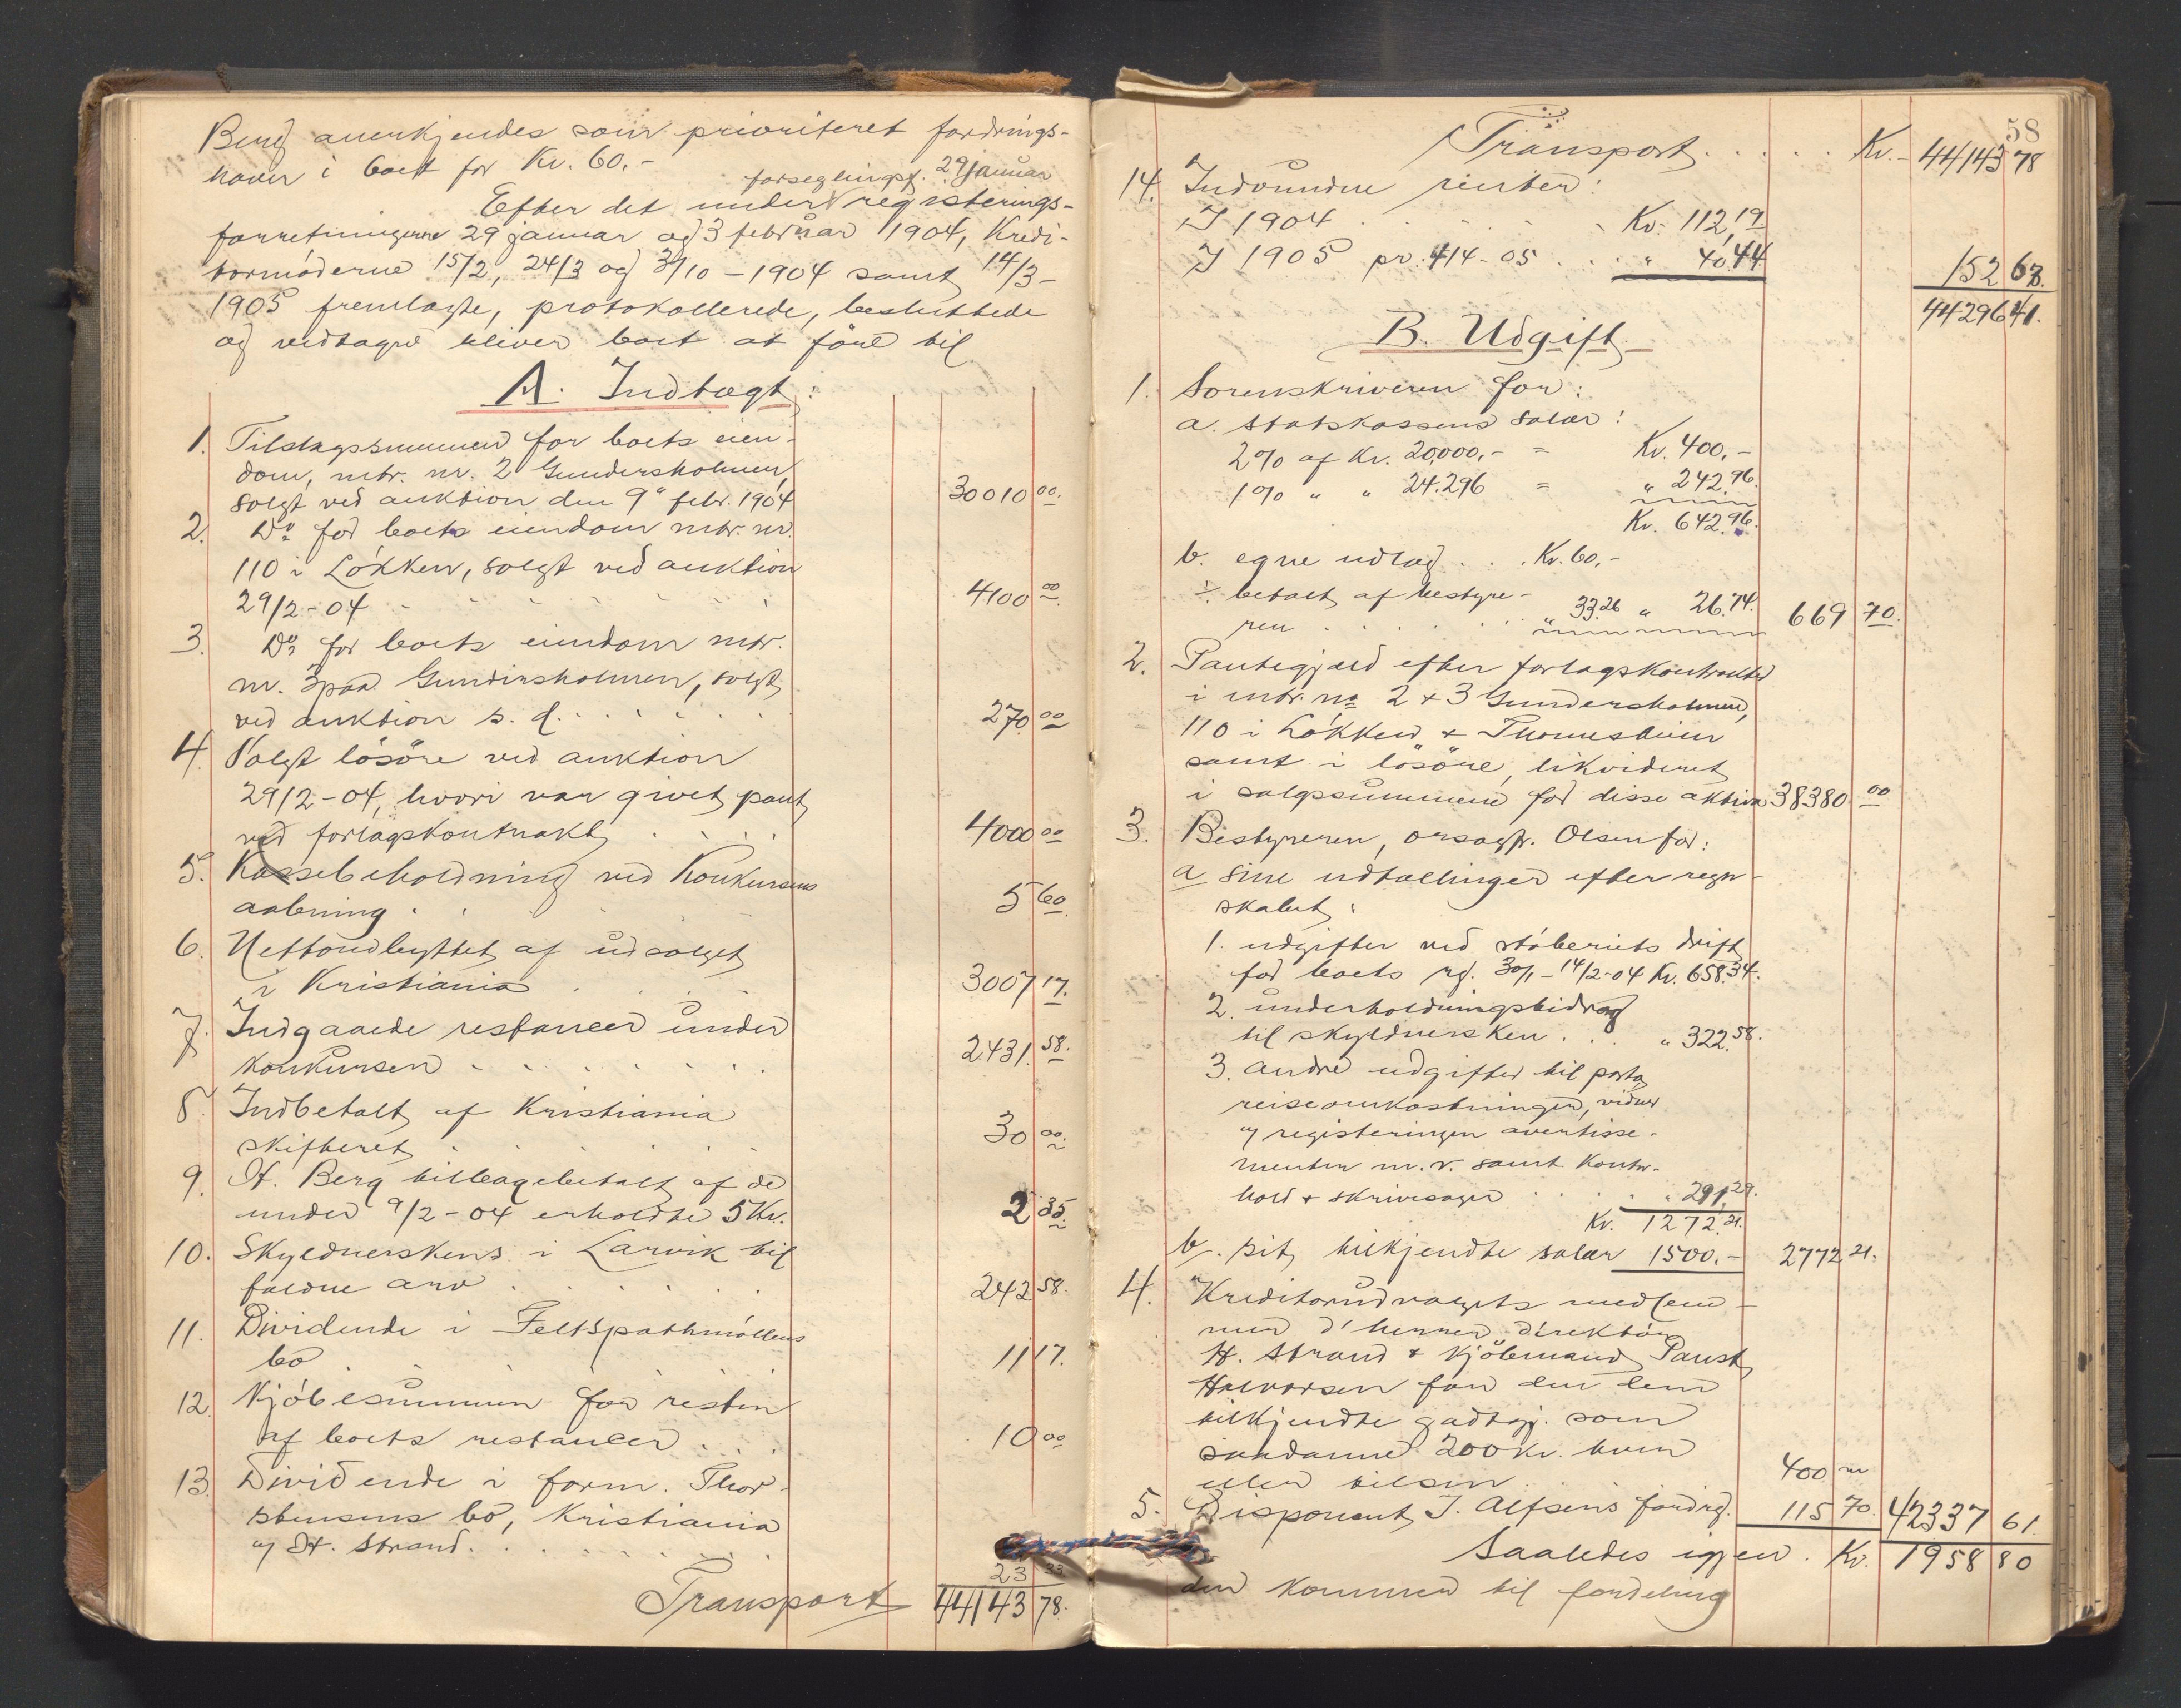 Berg anerkjendes som prioriteret fordrings-
haver i boet for Kr. 60.-
forseglingsf. 29 januar
Efter det under registerings-
forretningerne 29 januar og 3 februar 1904, Kredi-
tormøderne 15/2, 24/3 og 3/10 - 1904 samt 14/3-
1905 fremlagte, protokollerede, besluttede
og vedtagne bliver boet at føre til
A. Indtægt:
1. Tilslagssummen for boets eien-
dom, mtr. nr. 2 Gundersholmen,
solgt ved auktion den 9" febr. 1904 30010 00.
2. Do for boets eiendom mtr. nr.
110 i Løkken, solgt ved auktion
29/2-04 4100 00.
3. Do for boets eiendom mtr.
nr. 3 paa Gundersholmen, solgt
ved auktion s. d. 270 00
4. Solgt løsøre ved auktion
29/2-04, hvori var givet pant
ved forlagskontrakt 4000 00
5. Kassebeholdning ved Konkursens
aabning 5 60.
6. Nettoudbyttet af udsalget
i Kristiania 3007 17.
7. Indgaaede restancer under
konkursen 2431. 58.
8. Indbetalt af Kristiania
skifteret 30 00.
9. H. Berg tilbagebetalt af de
under 9/2-04 erholdte 5 Kr. 2 35.
10. Skyldnerskens i Larvik til
faldne arv 242 58.
11. Dividende i Feltspathmøllens
bo 11 17.
12. Kjøbesummen for resten
af boets restancer 10 00
13. Dividende i form. Thor-
stensens bo, Kristiania
og H. Strand. 23 33
Transport 44143 78.
58
Transport Kr. 44143 78
14. Indvundne renter:
I 1904 Kr. 112,19
I 1905 pr. 4/4-05 " 40.44 152 63.
44296 41.
B. Udgift
1. Sorenskriveren for:
a. statskassens salær:
2% af Kr. 20,000,- = Kr. 400,-
1% " " 24.296 = " 242.96.
Kr. 642.96.
b. egne udlæg Kr. 60,-
÷ betalt af bestyre-
ren " 33.26 " 26.74. 669 70.
2. Pantegjæld efter forlagskontrakter
i mtr. no 2 + 3 Gundersholmen,
110 i Løkken +
samt i løsøre, likvideret
i salgssummene for disse aktiva 38380 00
3. Bestyreren, orsagfr. Olsen for:
a sine udtællinger efter regn-
skabet:
1. udgifter ved støberiets drift
for boets rg. 30/1-14/2-04 Kr. 658.34.
2. underholdningsbidrag
til skyldnersken " 322.58.
3. andre udgifter til porto,
reiseomkostninger, vidner
og registeringen avertisse-
menter m. v. samt kontor-
hold + skrivesager " 291,29.
Kr. 1272.21.
b. sit tilkjendte salær 1500.- 2772 21.
4. Kreditorudvalgets medlem-
mer d'herrer direktør
H. Strand + Kjøbmand Paust
Halvorsen for den dem
tilkjendte godtgj. som
saadanne 200 Kr. hver
eller tilsm. 400 00
5. Disponent J. Alfsens fordrg. 115 70. 42337 61.
Saaledes igjen Kr. 1958 80
der kommer til fordeling